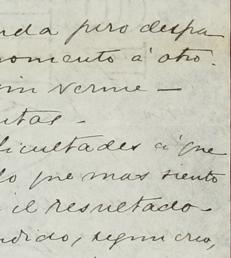 nda pero despu
momento á otro.
sin verme —
ntas.
ficultades á que
lo que mas siento
el resultado
ndido, segun creo,